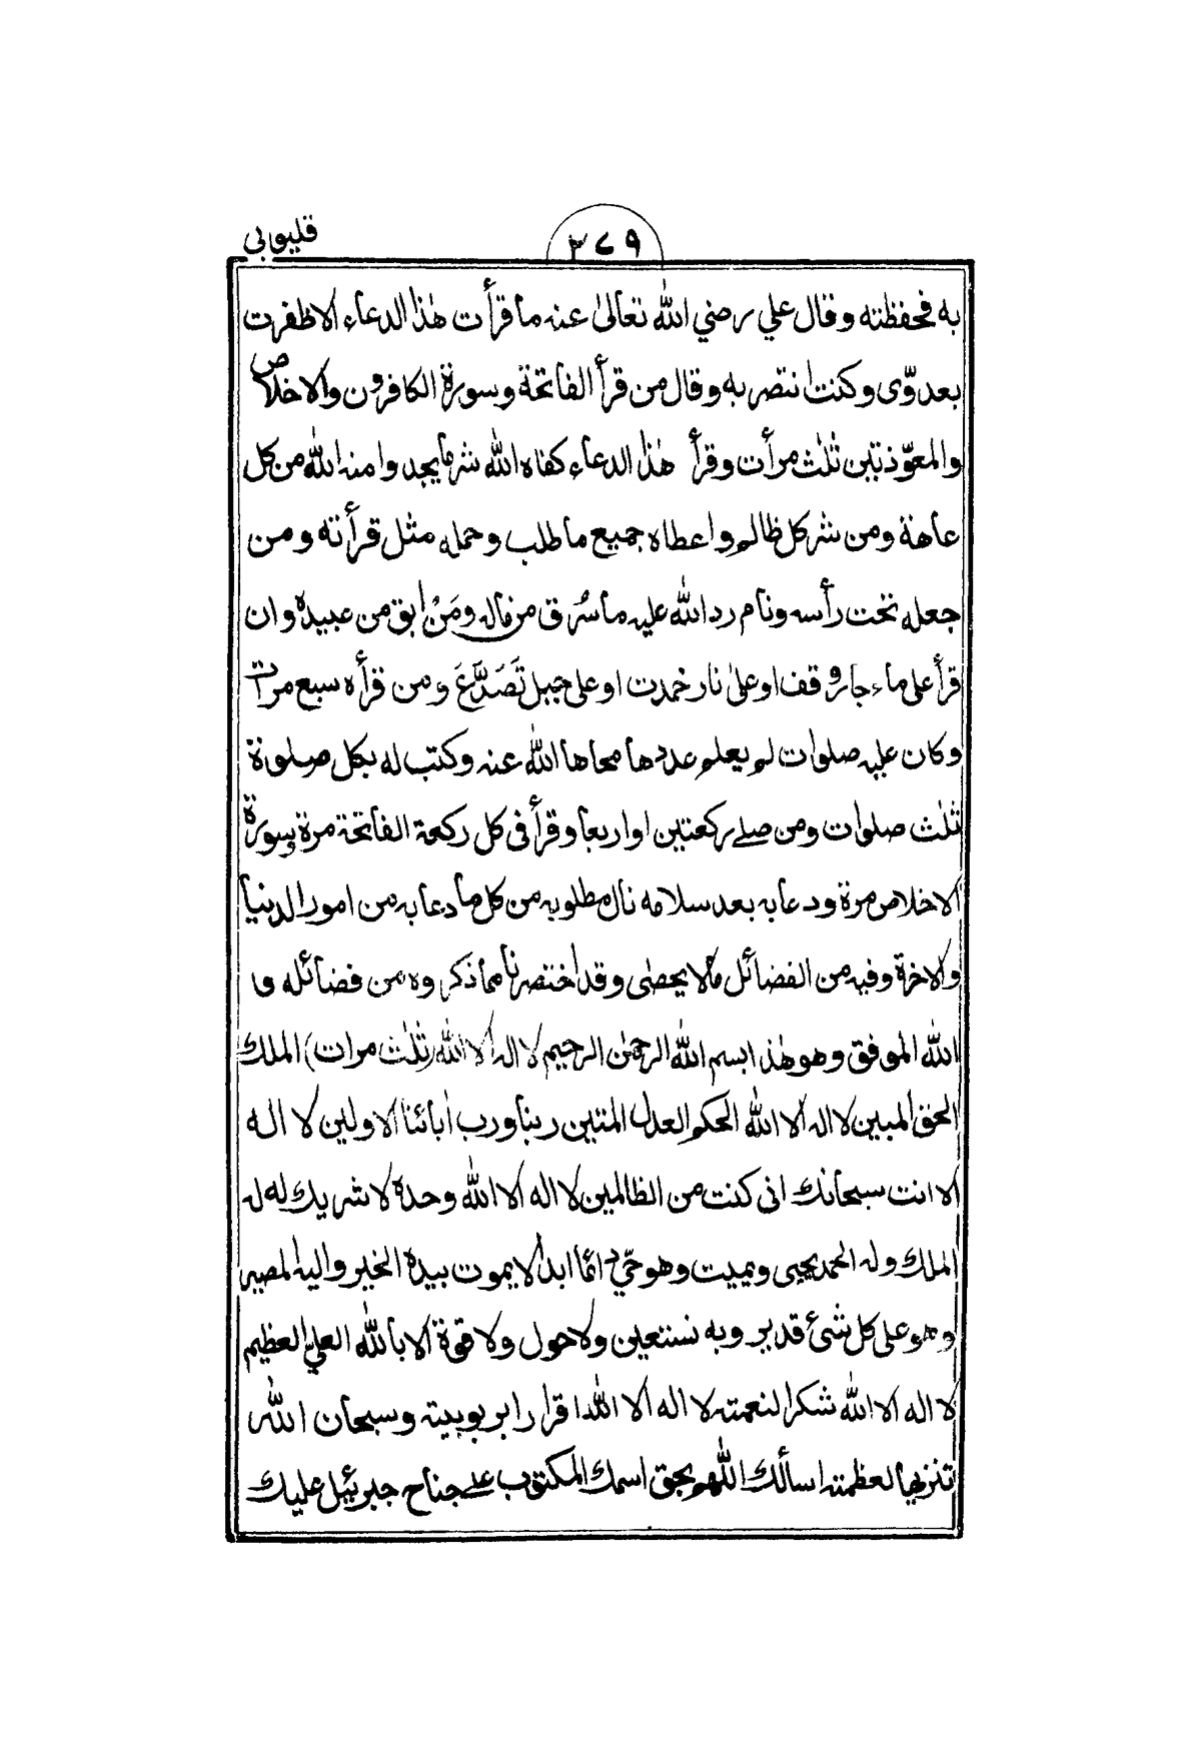 قليوبي
٣٧٩
به فحفظته وقال علي رضي الله تعالىٰ عنه ما قرأت هٰذا الدعاء الا ظفرت
بعدوّى وكنت انتصر به وقال من قرأ الفاتحة وسورة الكافرون والاخلاص
والمعوّذتين ثلٰث مرأت وقرأ هٰذا الدعاء كفاه الله شر ما يجد وامنه الله من كل
عاهة ومن شر كل ظالم واعطاه جميع ما طلب وحمله مثل قرأته ومن
جعله تحت رأسه ونام رد الله عليه ما سُرق من ماله ومَنْ ابق من عبيده وان
قرأ على ماء جار وقف او علىٰ نار خمدت او على جبل تَصَدَّعَ ومن قرأه سبع مرات
وكان عليه صلوات لم يعلم عددها محاها الله عنه وكتب له بكل صلوة
ثلٰث صلوات ومن صلے ركعتين او اربعا وقرأ فى كل ركعة الفاتحة مرة وسورة
الاخلاص مرة ودعا به بعد سلامه نال مطلوبه من كل ما دعا به من امور الدنيا
والاخرة وفيه من الفضائل مالا يحصٰى وقد اختصرنا مما ذكروه من فضائله وا
الله الموفق وهو هٰذا بسم الله الرحمٰن الرحيم لا اله الا الله (ثلٰث مرات) الملك
الحق المبين لا اله الا الله الحكم العدل المتين ربنا ورب اٰبائنا الاولين لا اله
الا انت سبحانك انى كنت من الظالمين لا اله الا الله وحده لا شريك له له
الملك وله الحمد يحيى ويميت وهو حيّ دائما ابدا لا يموت بيده الخير واليه المصير
وهو على كل شئ قدير وبه نستعين ولا حول ولا قوة الا بالله العليّ العظيم
لا اله الا الله شكرا لنعمته لا اله الا الله اقرارا بربوبيته وسبحان الله
تنزيها لعظمته اسألك اللهم بحق اسمك المكتوب علے جناح جبرئيل عليك